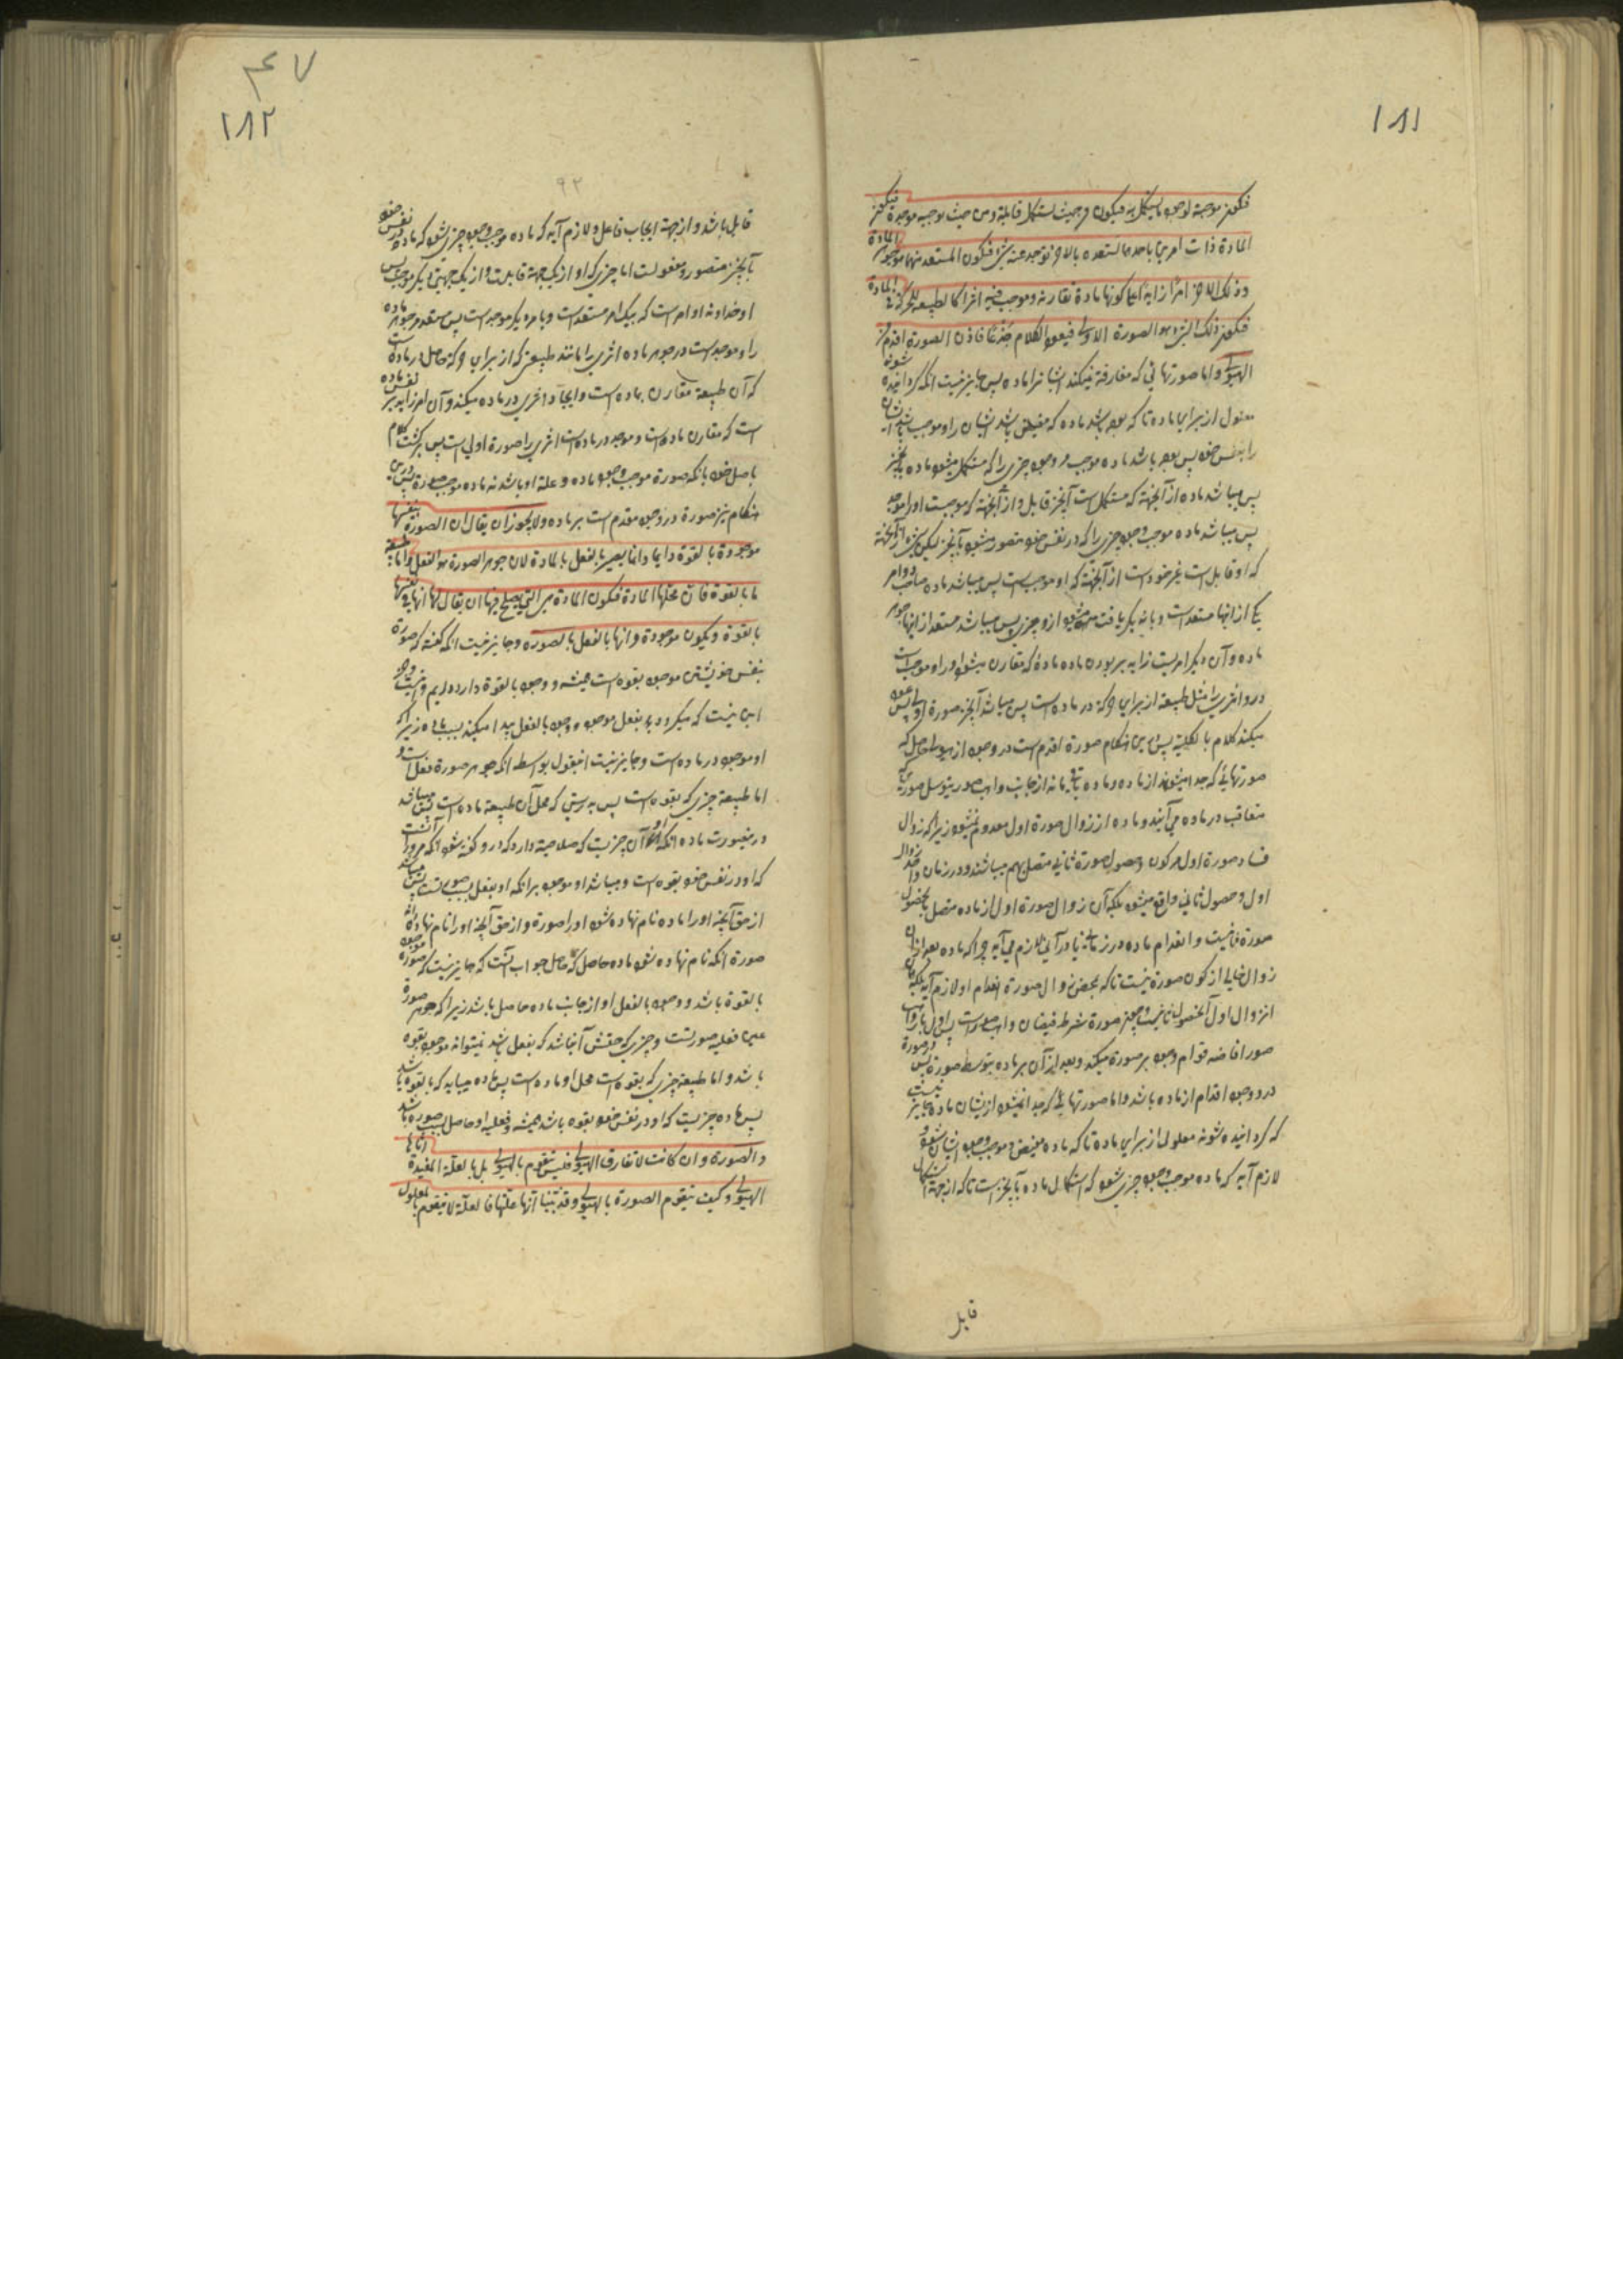 ۱۸۱
فتکون موجبة لوجود ما یستکمل به فیکون من حیث تستکمل قابلة ومن حیث توجب موجدة فیکون
المادة ذات امرین باحدهما تستعد و بالاخر توجد عنه شئ فتکون المستعد منهما هو جوهر المادة
وذلک الاخر امرا زایدا علی کونها مادة تقارنه وموجب فیه اثرا کالطبیعة للحرکة فی المادة
فیکون ذلک الشئ هو الصورة الاولی فیعود الکلام جذعا فاذن الصورة اقدم من
الهیولی واما صورتهائی که مفارقة نمیکند ایشانرا ماده پس جایز نیست انکه کردانیده شوند
معلول از برای ماده تا که بوده باشد ماده که مقتضی باشد ایشان را و موجب باشد ایشان
را بنفس خود پس بوده باشد ماده موجب وجود چیزی را که مستکمل میشود ماده بانچیز
پس میباشد ماده از آنجهة که مستکمل است آنچیز قابل و از آنجهة که موجبست او را موجد
پس میباشد ماده موجب وجود چیزی را که در نفس خود متصور میشود بآنچیز لیکن از آنجهة
که او قابل است غیر خود است از آنجهة که او موجب است پس میباشد ماده صاحب دو امر
یکی از انها مستعد است و بانه دیکر یافت میشود ازو چیزی پس میباشد مستعد از انها جوهر
ماده و آن دیکر امریست زاید بر بودن ماده مادهٔ که مقارن میشود او را و موجب است
درو اثری را مثل طبیعة از برای حرکة در ماده است پس میباشد آنچیز صورة اولی پس عود
میکند کلام بالکلیه پس درین هنکام صورة اقدم است در وجود از هیولی حاصل که
صورتهائی که جدا میشوند از ماده و ماده باقی میماند از جانب واهب صور بتوسل صورتی که
متعاقب در ماده می آیند و ماده از زوال صورة اول معدوم نمیشود زیرا که زوال
فساد صورة اول مرکون و حصول صورة ثانی متصل بهم میباشند و در زمان واحد زوال
اول و حصول ثانی واقع میشود بلکه آن زوال صورة اول از ماده متصل بحصول
صورة ثانیست و انعدام ماده در زمانی یا در آنی لازم می آید چرا که ماده بعد از آن
زوال خالی از کون صورة نیست تا که بمحض زوال صورة انعدام او لازم آید بلکه آن
آن زوال اول آن حصول ثانیست و چون صورة شرط فیضان واهب صور است پس اول واهب
صور افاضه قوام وجود بر صورة میکند و بعد از آن بر ماده بتوسط صورة پس صورة
در وجود اقدام از ماده باشد و اما صورتهائی که جدا نمیشوند ازیشان ماده جایز نیست
که کردانیده شوند معلول از برای ماده تا که ماده مفیض و موجب وجود ایشان شود و
لازم آید که ماده موجب وجود چیزی شود که استکمال ماده بآنچیز است تا که از جهة استکمال
قابل
۴۷
۱۸۲
۹۲
قابل باشد و از جهة ایجاب فاعل و لازم آید که ماده موجب وجود چیزی شود که ماده در نفس خود
بآنچیز متصور و معلولست اما چیزی که او از یک جهة قابلست و از یک جهتی دیکر موجب پس
او خداوند دو امر است که بیک امر مستعد است و بامر دیکر موجد است پس مستعد جوهر ماده
را و موجد است در جوهر ماده اثری را مانند طبیعتی که از برای حرکة حاصل در ماده است
که آن طبیعة مقارن ماده است و ایجاد اثری در ماده میکند و آن امر زاید بر نفس ماده
است که مقارن ماده است و موجد در ماده است اثری را صورة اولی است پس برکشت کلام
باصل خود بانکه صورة موجب وجود ماده و علة او باشد نه ماده موجب صورة پس درین
هنکام نیز صورة در وجود مقدم است بر ماده ولا یجوز ان یقال ان الصورة بنفسها
موجودة بالقوة دایما وانما یصیر بالفعل بالمادة لان جوهر الصورة هو الفعل واما طبیعة
ما بالقوة فان محلها المادة فتکون المادة هی التی یصلح فیها ان یقال لها انها فی نفسها
بالقوة ویکون موجودة وانها بالفعل بالصورة و جایز نیست انکه کفته که صورة
بنفس خویشتن موجود بقوه است همیشه و وجود بالقوه دارد دایم و نیست و جز
این نیست که میکردد بفعل موجود و وجود بالفعل پیدا میکند بسبب ماده زیرا که
او موجود در ماده است و جایز نیست اینقول بواسطه انکه جوهر صورة فعل است و
اما طبیعة چیزی که بقوه است پس بدرستی که محل آن طبیعة ماده است پس میباشد
درینصورت ماده انکه او آن چیزیست که صلاحیة دارد که درو کفته شود انکه مرو را آنست
که او در نفس خود بقوه است و میباشد او موجود بر انکه او بفعل بسبب صورتست پس میباشد
از حق آنچه او را ماده نام نهاده شود او را صورة و از حق آنچه او را نام نهاده شد
صورة انکه نام نهاده شود ماده حاصل که حاصل جواب آنست که جایز نیست که صورة موجود
بالقوة باشد و وجود بالفعل او از جانب ماده حاصل باشد زیرا که جوهر صورة
عین فعلیه صورتست و چیزی که حقش آن باشد که بفعل باشد نمیتواند موجود بقوه
باشد و اما طبیعة چیزی که بقوه است محل او ماده است پس ماده میباید که بالقوه باشد
پس ماده چیزیست که او در نفس خود بقوه باشد همیشه و فعلیه او حاصل بسبب صورة باشد
والصورة وان کانت لا تفارق الهیولی فلیس تتقوم بالهیولی بل بالعلة المفیدة ایاها
الهیولی وکیف تتقوم الصورة بالهیولی وقد بینا انها علتها فالعلة لا تتقوم بالمعلول